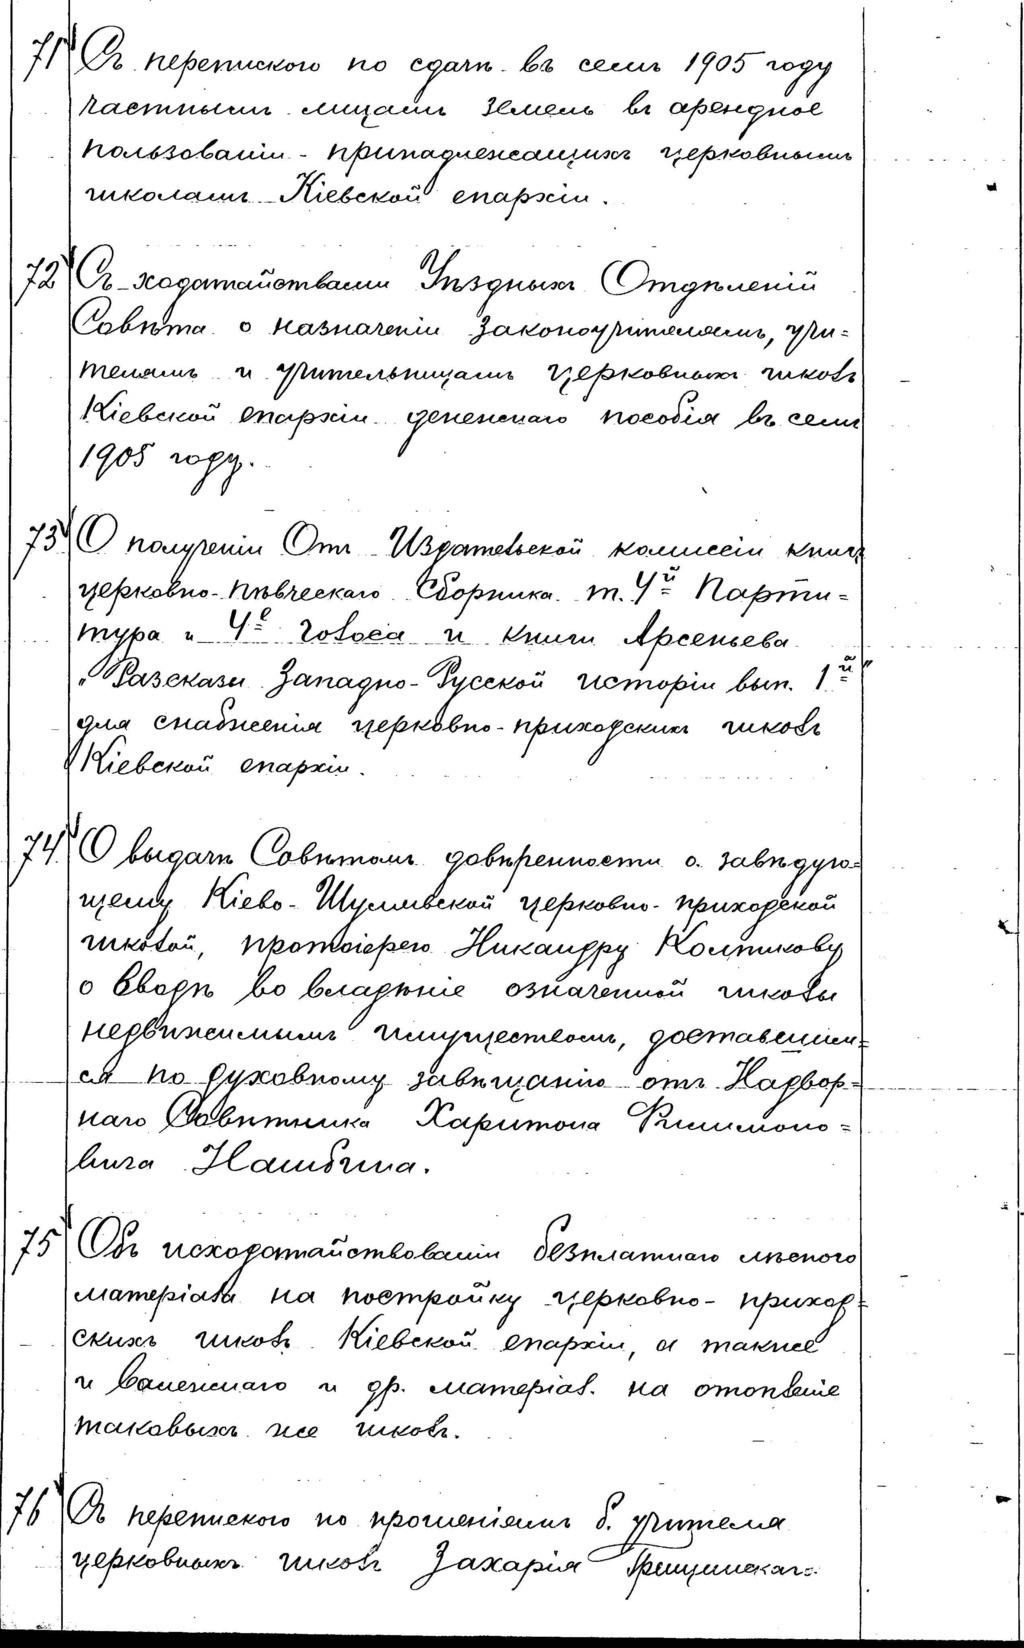 71 Съ перепискою по сдачѣ въ семъ 1905 году
частнымъ лицамъ земель въ арендное
пользованіи - принадлежащихъ церковнымъ
школамъ Кіевской епархіи.
72 Съ ходатайствами Уѣздныхъ Отдѣленій
Совѣта о назначеніи законоучителямъ, учи=
телямъ и учительницамъ церковныхъ школъ
Кіевской епархіи денежнаго пособія въ семъ
1905 году.
73 О полученіи Отъ Издательской коммиссіи книгъ
церковно-пѣвческаго Сборника т. 4й Парти=
тура и 4е голоса и книги Арсеньева
„Разсказы Западно-Русской исторіи вып. 1й“
для снабженія церковно-приходскихъ школъ
Кіевской епархіи.
74 О выдачѣ Совѣтомъ довѣренности о. завѣдую=
щему Кіево-Шулявской церковно-приходской
школой, протоіерею Никандру Колпикову
о вводѣ во владѣніе означенной школы
недвижимымъ имуществомъ, доставшим=
ся по духовному завѣщанію отъ Надвор=
наго Совѣтника Харитона Филимоно=
вича
75 Объ исходатайствованіи безплатнаго лѣсного
матеріала на постройку церковно-приход=
скихъ школъ Кіевской епархіи, а также
и валежнаго и др. матеріал. на отопленіе
таковыхъ же школъ.
76 Съ перепискою по прошеніямъ б. учителя
церковныхъ школъ Захарія